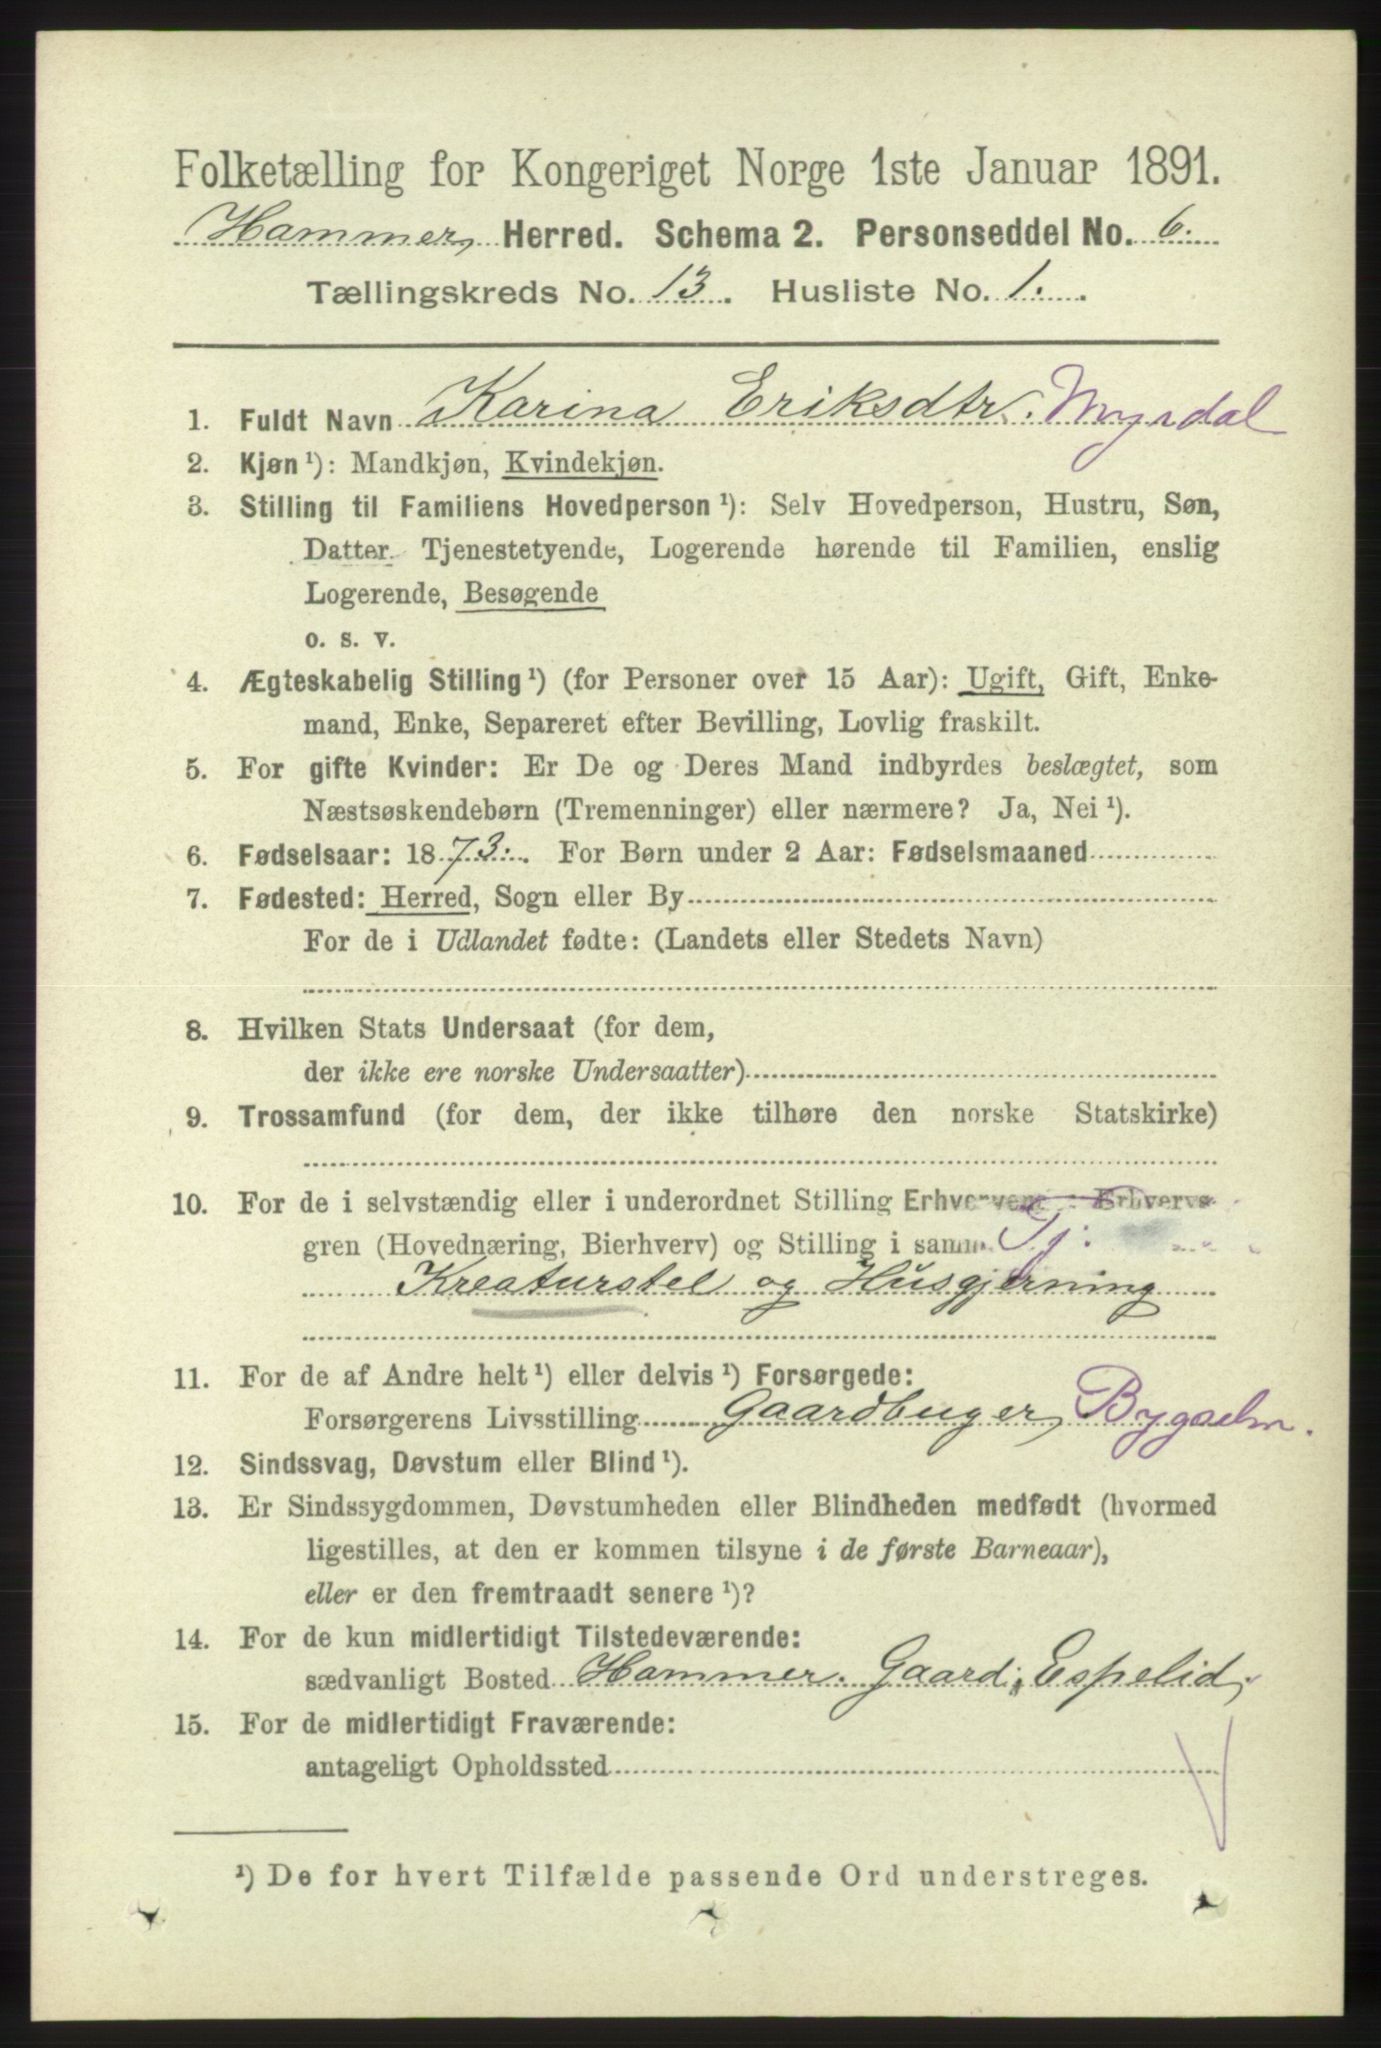 Folketælling for Kongeriget Norge 1ste Januar 1891.
Hammer Herred. Schema 2. Personseddel No. 6.
Tællingskreds No. 13. Husliste No. 1.
1. Fuldt Navn Karina Eriksdtr. Myrdal
2. Kjøn ¹): Mandkjøn, Kvindekjøn.
3. Stilling til Familiens Hovedperson ¹): Selv Hovedperson, Hustru, Søn,
Datter, Tjenestetyende, Logerende hørende til Familien, enslig
Logerende, Besøgende
o. s. v.
4. Ægteskabelig Stilling ¹) (for Personer over 15 Aar): Ugift, Gift, Enke-
mand, Enke, Separeret efter Bevilling, Lovlig fraskilt.
5. For gifte Kvinder: Er De og Deres Mand indbyrdes beslægtet, som
Næstsøskendebørn (Tremenninger) eller nærmere? Ja, Nei ¹).
6. Fødselsaar: 1873. For Børn under 2 Aar: Fødselsmaaned
7. Fødested: Herred, Sogn eller By
For de i Udlandet fødte: (Landets eller Stedets Navn)
8. Hvilken Stats Undersaat (for dem,
der ikke ere norske Undersaatter)
9. Trossamfund (for dem, der ikke tilhøre den norske Statskirke)
10. For de i selvstændig eller i underordnet Stilling Erhvervende: Erhvervs-
gren (Hovednæring, Bierhverv) og Stilling i samme Tj.
Kreaturstel og Husgjerning
11. For de af Andre helt ¹) eller delvis ¹) Forsørgede:
Forsørgerens Livsstilling Gaardbuger, Bygselm.
12. Sindssvag, Døvstum eller Blind ¹).
13. Er Sindssygdommen, Døvstumheden eller Blindheden medfødt (hvormed
ligestilles, at den er kommen tilsyne i de første Barneaar),
eller er den fremtraadt senere ¹)?
14. For de kun midlertidigt Tilstedeværende:
sædvanligt Bosted Hammer. Gaard: Espelid,
15. For de midlertidigt Fraværende:
antageligt Opholdssted
¹) De for hvert Tilfælde passende Ord understreges.